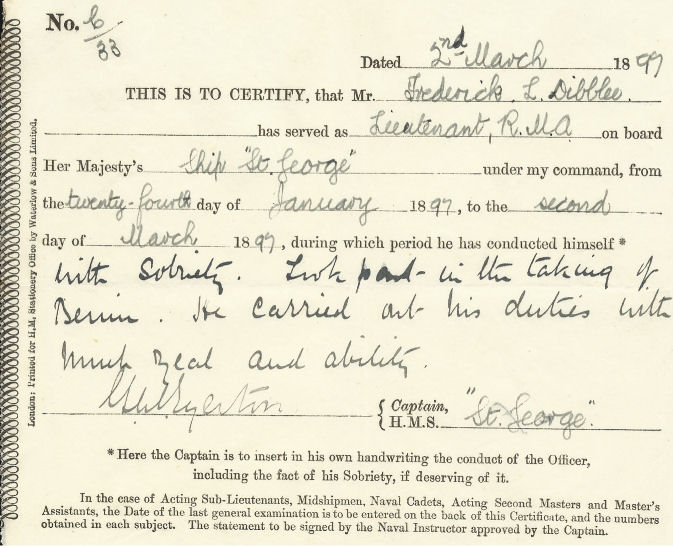 No. 6/33
Dated 2nd March 1897
THIS IS TO CERTIFY, that Mr. Frederick L. Dibblee.
has served as Lieutenant, R.M.A on board
Her Majesty's Ship "St. George" under my command, from
the twenty-fourth day of January 1897, to the second
day of March 1897, during which period he has conducted himself *
with Sobriety. Took part in the taking of
Benin. He carried out his duties with
much zeal and ability.
{ Captain,
{ H.M.S. "St. George".
* Here the Captain is to insert in his own handwriting the conduct of the Officer,
including the fact of his Sobriety, if deserving of it.
In the case of Acting Sub-Lieutenants, Midshipmen, Naval Cadets, Acting Second Masters and Master's
Assistants, the Date of the last general examination is to be entered on the back of this Certificate, and the numbers
obtained in each subject. The statement to be signed by the Naval Instructor approved by the Captain.
London: Printed for H.M. Stationery Office by Waterlow & Sons Limited.